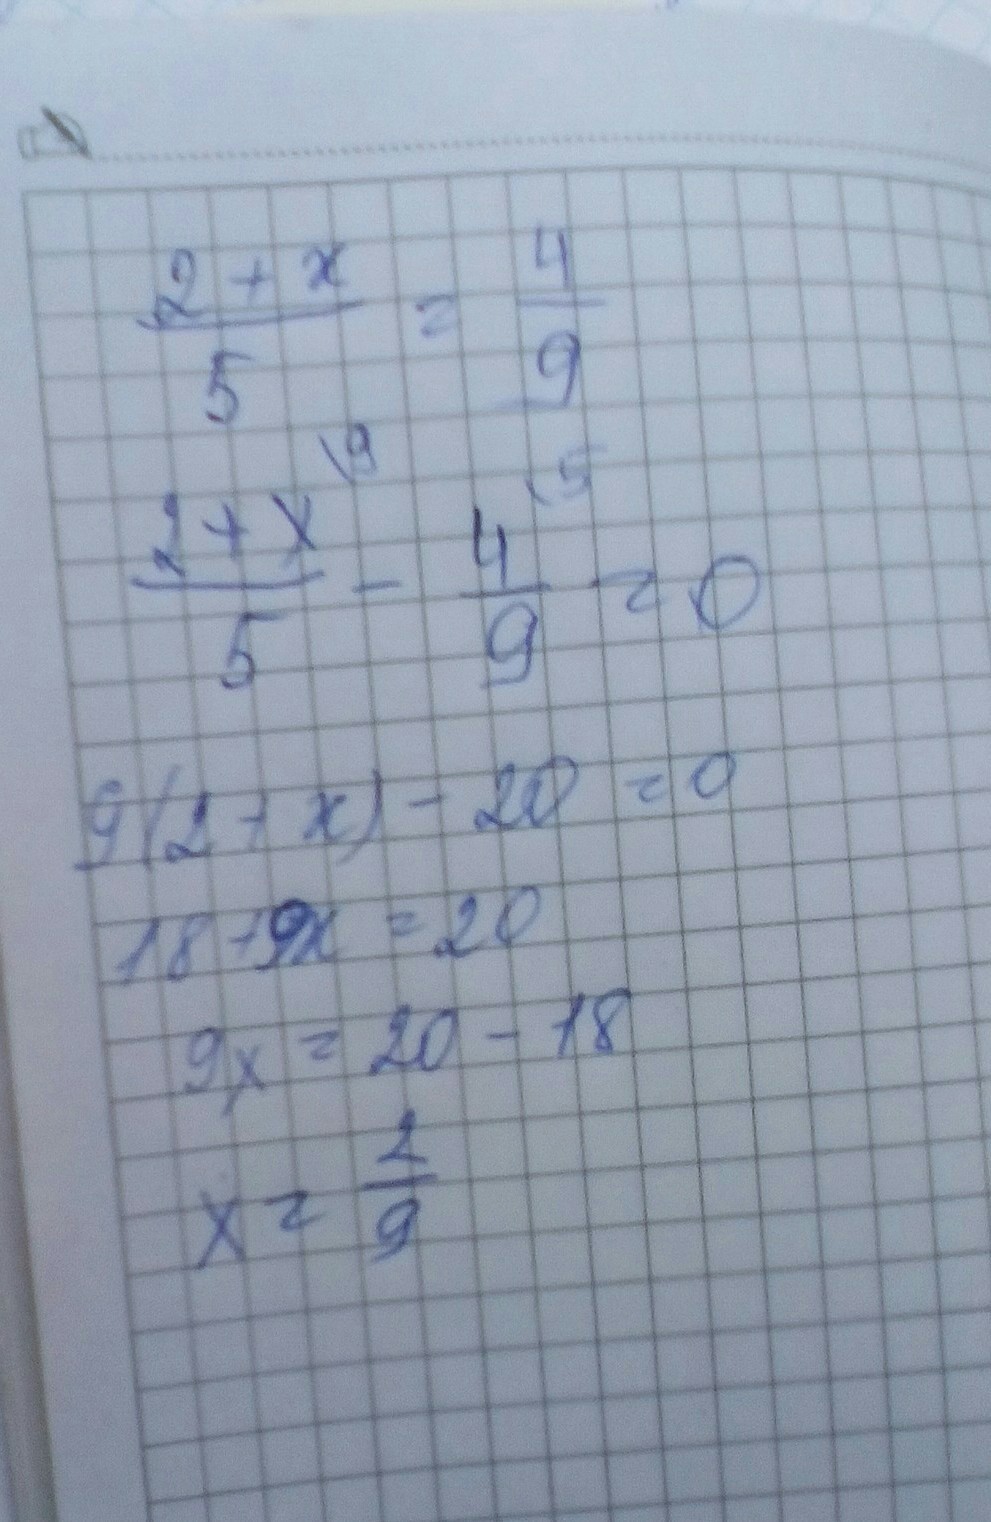 (2 + x)/5 = 4/9
(2 + x)/5 \9 - 4/9 \5 = 0
9(2 + x) - 20 = 0
18 + 9x = 20
9x = 20 - 18
x = 2/9